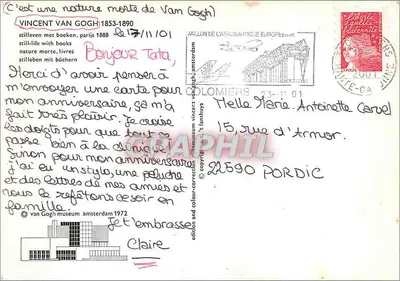 (C'est une nature morte de Van Gogh)
VINCENT VAN GOGH 1853-1890
stilleven met boeken, parijs 1888
still-life with books
nature morte, livres
stilleben mit büchern
le 17/11/01
Bonjour Tata,
Merci d'avoir penser à
m'envoyer une carte pour
mon anniversaire, ça m'a
fait très plaisir. Je croise
les doigts pour que tout se
passe bien à la clinique,
sinon pour mon anniversaire
j'ai eu un stylo, une peluche
et des lettres de mes amies et
nous le refêtons ce soir en
famille.
Je t'embrasse
Claire
© van Gogh museum amsterdam 1972
edition and colour-correction museum vincent van gogh, amsterdam
© copyright
JALLON DE L'AERONAUTIQUE EUROPEENNE
COLOMIERS
23-11 01
2001
HTE-GA
Liberté
Egalité
Fraternité
Melle Marie-Antoinette Carvel
15, rue d'Armor.
22590 PORDIC
CPAPHIL